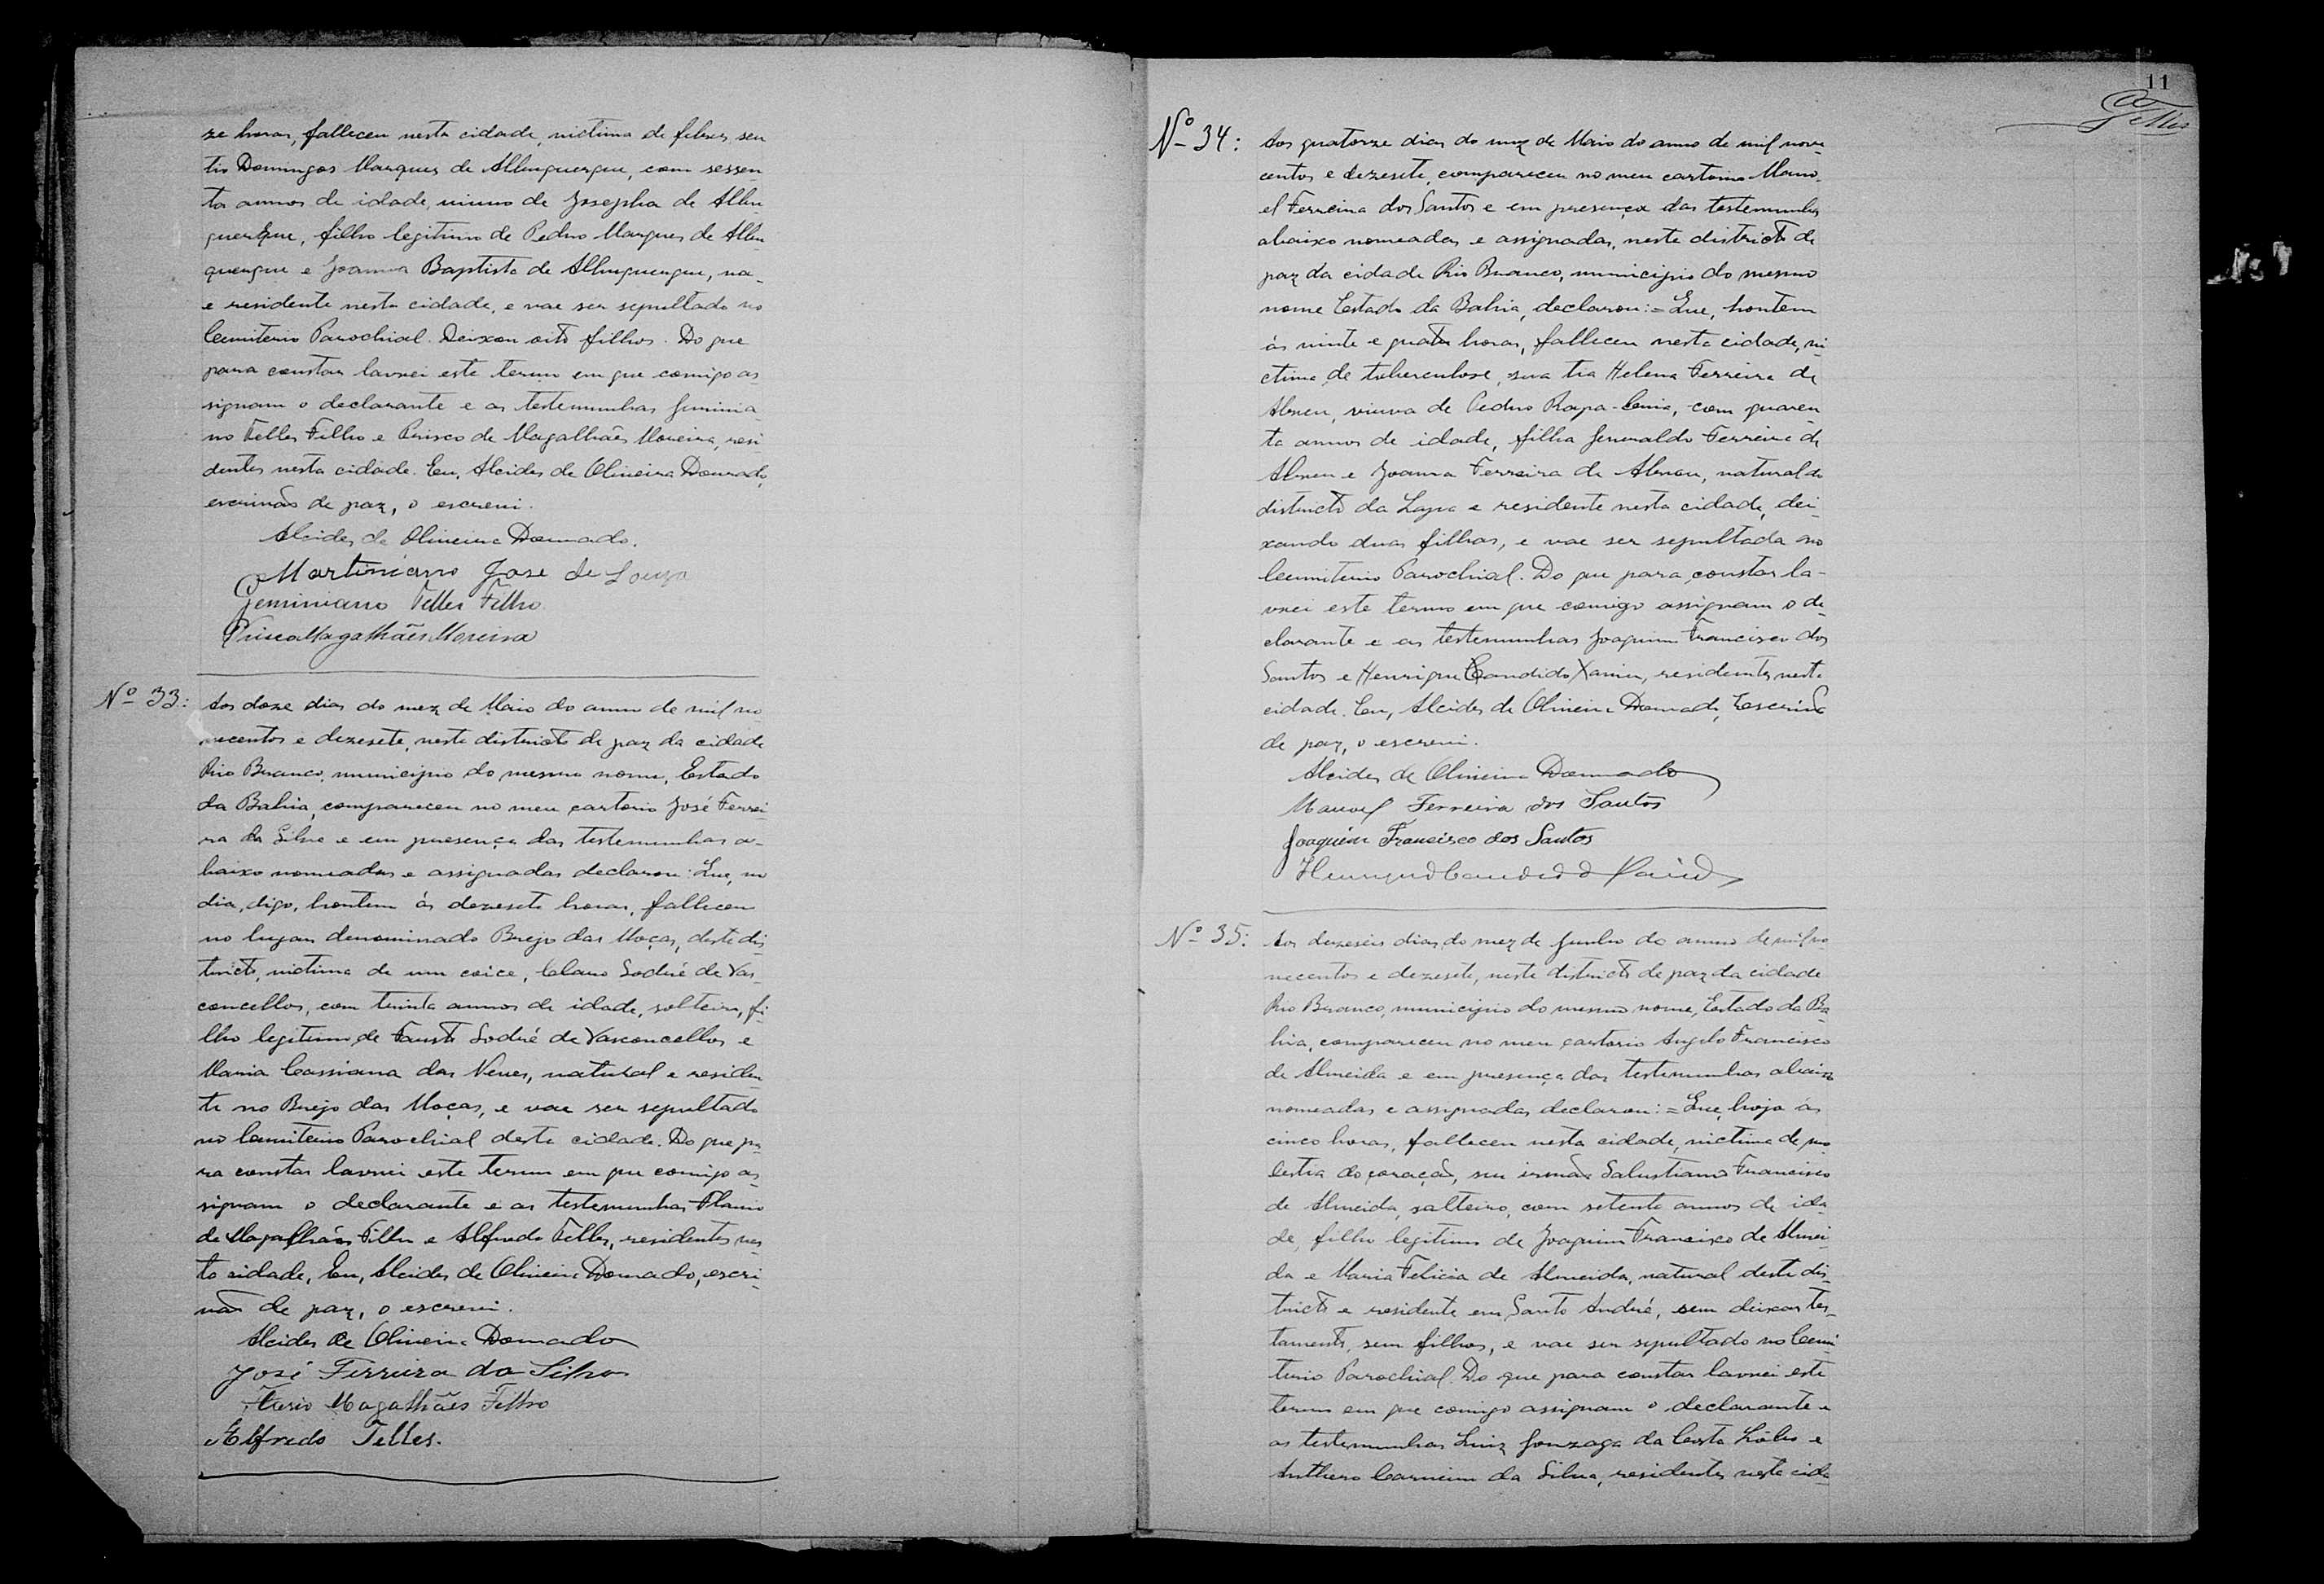 ze horas, falleceu nesta cidade, victima de febres, seu
tio Domingos Marques de Albuquerque, com sessen-
ta annos de idade, viuvo de Josepha de Albu-
querque, filho legitimo de Pedro Marques de Albu
querque e Joanna Baptista de Albuquerque, na-
e residente nesta cidade, e vae ser sepultado no
Cemiterio Parochial. Deixou oito filhos. Do que
para constar lavrei este termo em que comigo as-
signam o declarante e as testemunhas Geminia-
no Telles Filho e Prisco de Magalhães Moreira, resi-
dentes nesta cidade. Eu, Alcides de Oliveira Dourado,
escrivão de paz, o escrevi.
Alcides de Oliveira Dourado.
Martiniano Jose de Souza
Geminiano Telles Filho
Prisco Magalhães Moreira
Nº 33:
Aos doze dias do mez de Maio do anno de mil no-
vecentos e dezesete, neste districto de paz da cidade
Rio Branco, municipio do mesmo nome, Estado
da Bahia, compareceu no meu cartorio José Ferrei-
ra da Silva e em presença das testemunhas a-
baixo nomeadas e assignadas declarou: Que, no
dia, digo, hontem ás dezesete horas, falleceu
no lugar denominado Brejo das Moças, deste dis-
tricto, victima de um coice, Claro Sodré de Vas-
concellos, com trinta annos de idade, solteiro, fi-
lho legitimo de Fausto Sodré de Vasconcellos e
Maria Cassiana das Neves, natural e residen-
te no Brejo das Moças, e vae ser sepultado
no Cemiterio Parochial desta cidade. Do que pa-
ra constar lavrei este termo em que comigo as-
signam o declarante e as testemunhas Flavio
de Magalhães Filho e Alfredo Telles, residentes nes-
ta cidade, Eu, Alcides de Oliveira Dourado, escri-
vão de paz, o escrevi.
Alcides de Oliveira Dourado
José Ferreira da Silva
Flavio Magalhães Filho
Alfredo Telles.
11
Telles
Nº 34:
Aos quatorze dias do mez de Maio do anno de mil nove-
centos e dezesete, compareceu no meu cartorio Mano-
el Ferreira dos Santos e em presença das testemunhas
abaixo nomeadas e assignadas, neste districto de
paz da cidade Rio Branco, municipio do mesmo
nome Estado da Bahia, declarou: = Que, hontem
ás vinte e quatro horas, falleceu nesta cidade, vi-
ctima de tuberculose, sua tia Helena Ferreira de
Abreu, viuva de Pedro Rapa-Cuia, com quaren-
ta annos de idade, filha Generaldo Ferreira de
Abreu e Joanna Ferreira de Abreu, natural do
districto da Lapa e residente nesta cidade, dei-
xando duas filhas, e vae ser sepultada no
Cemiterio Parochial. Do que para constar la-
vrei este termo em que comigo assignam o de-
clarante e as testemunhas Joaquim Francisco dos
Santos e Henrique Candido Xavier, residentes nesta
cidade. Eu, Alcides de Oliveira Dourado, Escrivão
de paz, o escrevi.
Alcides de Oliveira Dourado
Manoel Ferreira dos Santos
Joaquim Francisco dos Santos
Henrique Candido
Nº 35:
Aos dezeseis dias do mez de Junho do anno de mil no-
vecentos e dezesete, neste districto de paz da cidade
Rio Branco, municipio do mesmo nome, Estado da Ba-
hia, compareceu no meu cartorio Angelo Francisco
de Almeida e em presença das testemunhas abaixo
nomeadas e assignadas declarou: = Que, hoje ás
cinco horas, falleceu nesta cidade, victima de mo-
lestia do coração, seu irmão Salustiano Francisco
de Almeida, solteiro, com setenta annos de ida-
de, filho legitimo de Joaquim Francisco de Almei-
da e Maria Felicia de Almeida, natural deste dis-
tricto e residente em Santo André, sem deixar tes-
tamento, sem filhos, e vae ser sepultado no Cemi-
terio Parochial. Do que para constar lavrei este
termo em que comigo assignam o declarante e
as testemunhas Luiz Gonzaga da Costa Lobo e
Anthero Carneiro da Silva, residentes nesta cida